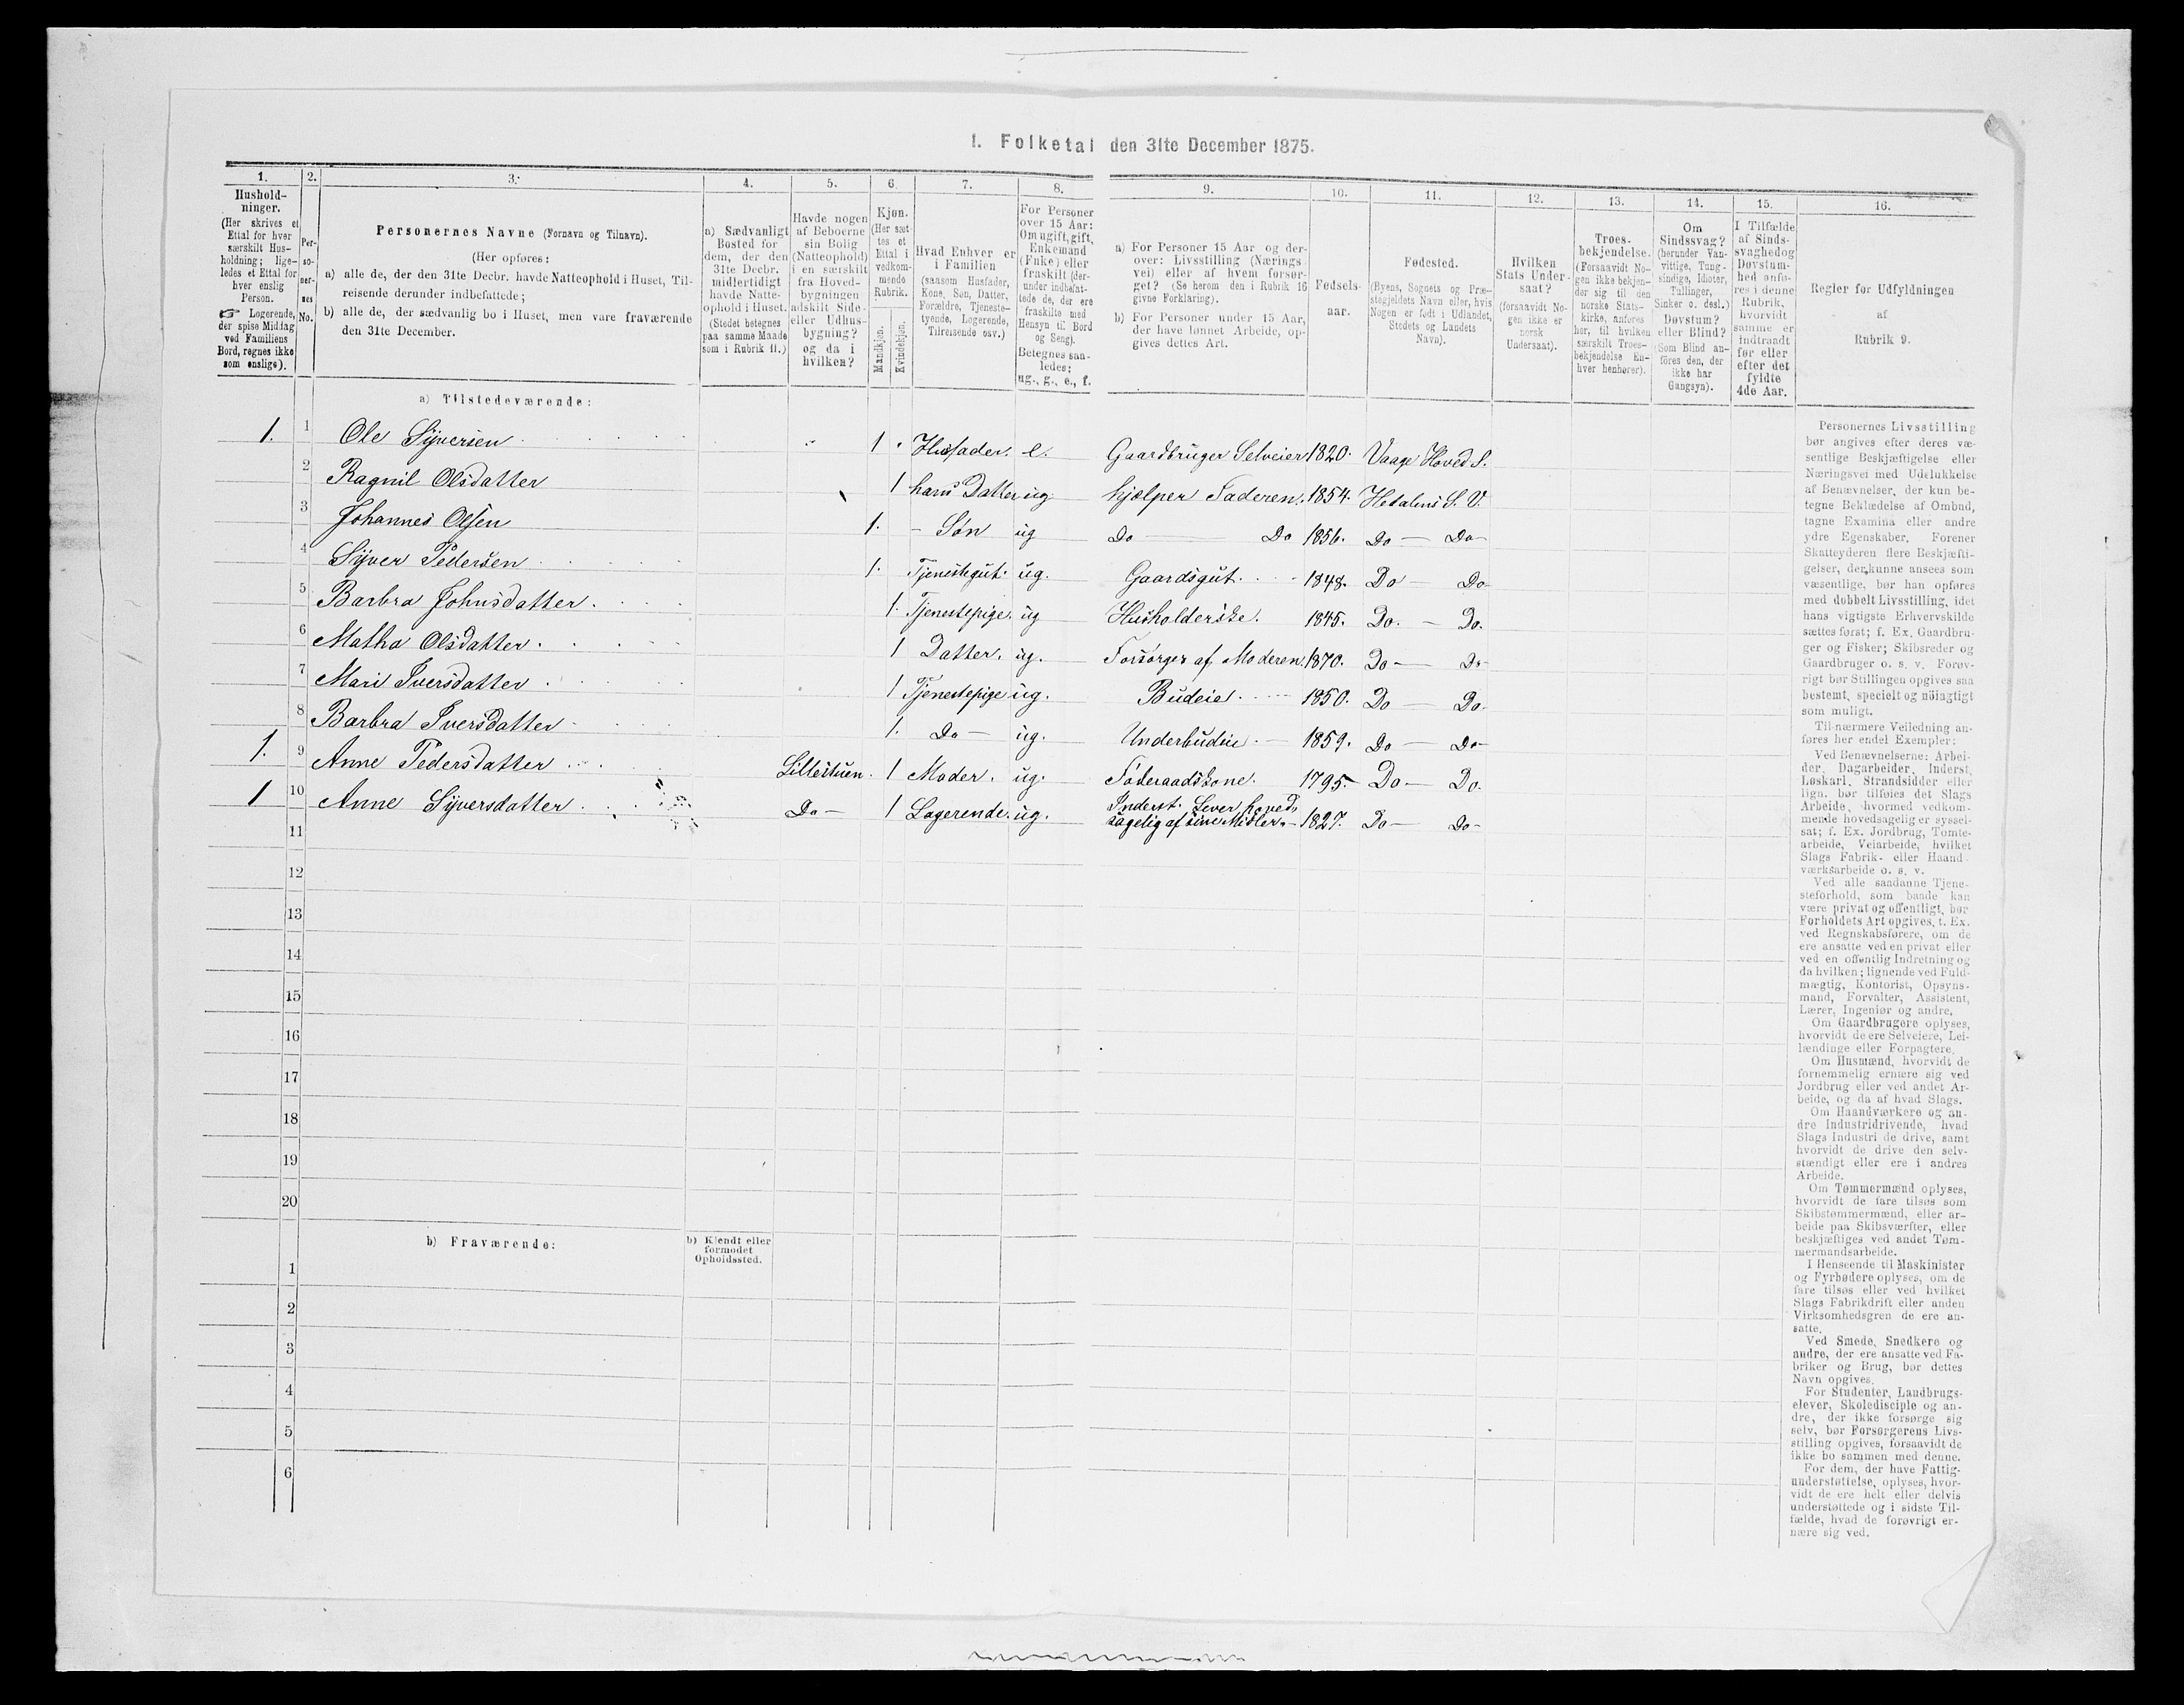 I. Folketal den 31te December 1875.
1. 2. 3. 4. 5. 6. 7. 8. 9. 10. 11. 12. 13. 14. 15. 16.
Hushold-
ninger.
(Her skrives et
Ettal for hver
særskilt Hus-
holdning; lige-
ledes et Ettal for
hver enslig
Person.
☞ Logerende,
der spise Middag
ved Familiens
Bord, regnes ikke
som enslige).
Per-
so-
ner-
nes
No.
Personernes Navne (Fornavn og Tilnavn).
(Her opføres:
a) alle de, der den 31te Decbr. havde Natteophold i Huset, Til-
reisende derunder indbefattede;
b) alle de, der sædvanlig bo i Huset, men vare fraværende
den 31te December.
a) Sædvanligt
Bosted for
dem, der den
31te Decbr.
midlertidigt
havde Natte-
ophold i Huset.
(Stedet betegnes
paa samme Maade
som i Rubrik 11.)
Havde nogen
af Beboerne
sin Bolig
(Natteophold)
i en særskilt
fra Hoved-
bygningen
adskilt Side-
eller Udhus-
bygning?
og da i
hvilken?
Kjøn.
(Her sæt-
tes et
Ettal i
vedkom-
mende
Rubrik.
Mandkjøn.
Kvindekjøn.
Hvad Enhver er
i Familien
(saasom Husfader,
Kone, Søn, Datter,
Forældre, Tjeneste-
tyende, Logerende,
Tilreisende osv.)
For Personer
over 15 Aar:
Om ugift, gift,
Enkemand
(Enke) eller
fraskilt (der-
under indbefat-
tede de, der ere
fraskilte med
Hensyn til Bord
og Seng).
Betegnes saa-
ledes:
ug., g., e., f.
a) For Personer 15 Aar og der-
over: Livsstilling (Nærings-
vei) eller af hvem forsør-
get? (Se herom den i Rubrik 16
givne Forklaring).
b) For Personer under 15 Aar,
der have lønnet Arbeide, op-
gives dettes Art.
Fødsels-
aar.
Fødested.
(Byens, Sognets og Præ-
stegjeldets Navn eller, hvis
Nogen er født i Udlandet,
Stedets og Landets
Navn).
Hvilken
Stats Under-
saat?
(forsaavidt No-
gen ikke er
norsk
Undersaat).
Troes-
bekjendelse.
(Forsaavidt No-
gen ikke bekjen-
der sig til den
norske Stats-
kirke, anføres
her, til hvilken
særskilt Troes-
bekjendelse En-
hver henhører).
Om
Sindssvag?
(herunder Van-
vittige, Tung-
sindige, Idioter,
Tullinger,
Sinker o. desl.)
Døvstum?
eller Blind?
(Som Blind an-
føres den, der
ikke har
Gangsyn).
I Tilfælde
af Sinds-
svaghed og
Døvstum-
hed anfø-
res i denne
Rubrik,
hvorvidt
samme er
indtraadt
før eller
efter det
fyldte
4de Aar.
Regler for Udfyldningen
af
Rubrik 9.
a) Tilstedeværende:
1. 1 Ole Syversen 1 Husfader. e. Gaardbruger Selveier 1820. Vaage Hoved S.
2 Ragnil Olsdatter 1 hans Datter ug. hjælper Faderen. 1854. Hedalens S. V.
3 Johannes Olsen 1. - Søn ug Do Do 1856. Do - Do
4 Syver Pedersen 1. Tjenestegut. ug. Gaardsgut. 1848. Do Do
5 Barbra Johnsdatter. 1. Tjenestepige. ug Husholderske. 1845. Do. - Do.
6 Matha Olsdatter. 1 Datter. ug. Forsørges af Moderen. 1870. Do - Do
7 Mari Iversdatter 1 Tjenestepige ug. Budeie. 1850. Do - Do.
8 Barbra Iversdatter 1. Do - ug. Underbudeie. - 1859. Do - Do
1. 9 Anne Pedersdatter Lillestuen. 1 Moder. ug. Føderaadskone. 1795. Do - Do.
1 10 Anne Syversdatter. Do - 1 Logerende. ug. Inderst. Lever hoved-
sagelig af sine Midler. - 1827. Do - Do
11
12
13
14
15
16
17
18
19
20
b) Fraværende:
b) Kjendt eller
formodet
Opholdssted.
1
2
3
4
5
6
Personernes Livsstilling
bør angives efter deres væ-
sentlige Beskjæftigelse eller
Næringsvei med Udelukkelse
af Benævnelser, der kun be-
tegne Beklædelse af Ombud,
tagne Examina eller andre
ydre Egenskaber. Forener
Skatteyderen flere Beskjæfti-
gelser, der kunne ansees som
væsentlige, bør han opføres
med dobbelt Livsstilling, idet
hans vigtigste Erhvervskilde
sættes først; f. Ex. Gaardbru-
ger og Fisker; Skibsreder og
Gaardbruger o. s. v. Forøv-
rigt bør Stillingen opgives saa
bestemt, specielt og nöiagtigt
som muligt.
Til nærmere Veiledning an-
føres her endel Exempler:
Ved Benævnelserne: Arbei-
der, Dagarbeider, Inderst,
Løskarl, Strandsidder eller
lign. bør tilføies det Slags
Arbeide, hvormed vedkom-
mende hovedsagelig er syssel-
sat; f. Ex. Jordbrug, Tomte-
arbeide, Veiarbeide, hvilket
Slags Fabrik- eller Haand-
værksarbeide o. s. v.
Ved alle saadanne Tjene-
steforhold, som baade kan
være privat og offentligt, bør
Forholdets Art opgives, t. Ex.
ved Regnskabsførere, om de
ere ansatte ved en privat eller
ved en offentlig Indretning og
da hvilken; lignende ved Fuld-
mægtig, Kontorist, Opsyns-
mand, Forvalter, Assistent,
Lærer, Ingeniør og andre.
Om Gaardbrugere oplyses,
hvorvidt de ere Selveiere, Lei-
lændinge eller Forpagtere.
Om Husmænd, hvorvidt de
fornemmelig ernære sig ved
Jordbrug eller ved andet Ar-
beide, og da af hvad Slags.
Om Haandværkere og an-
dre Industridrivende, hvad
Slags Industri de drive, samt
hvorvidt de drive den selv-
stændigt eller ere i andres
Arbeide.
Om Tømmermænd oplyses,
hvorvidt de fare tilsøs som
Skibstømmermænd, eller ar-
beide paa Skibsværfter, eller
beskjæftiges ved andet Tøm-
mermandsarbeide.
I Henseende til Maskinister
og Fyrbødere oplyses, om de
fare tilsøs eller ved hvilket
Slags Fabrikdrift eller anden
Virksomhedsgren de ere an-
satte.
Ved Smede, Snedkere og
andre, der ere ansatte ved Fa-
briker og Brug, bør dettes
Navn opgives.
For Studenter, Landbrugs-
elever, Skoledisciple og an-
dre, der ikke forsørge sig
selv, bør Forsørgerens Livs-
stilling opgives, forsaavidt de
ikke bo sammen med denne.
For dem, der have Fattig-
understøttelse, oplyses, hvor-
vidt de ere helt eller delvis
understøttede og i sidste Til-
fælde, hvad de forøvrigt er-
nære sig ved.